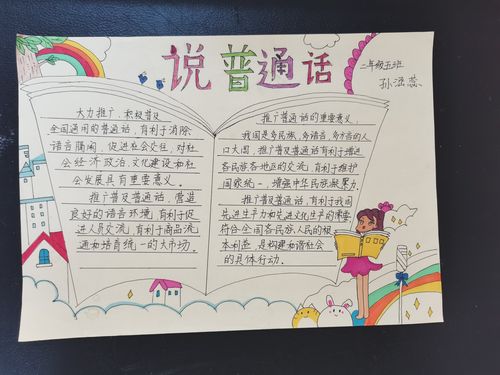 说普通话
二年级五班
孙滋蕊
大力推广、积极普及
全国通用的普通话,有利于消除
语言隔阂,促进社会交往,对社
会经济政治、文化建设和社
会发展具有重要意义。
推广普及普通话,营造
良好的语言环境,有利于促
进人员交流,有利于商品流
通和培育统一的大市场。
推广普通话的重要意义:
我国是多民族、多语言、多方言的人
口大国,推广普及普通话有利于增进
各民族各地区的交流,有利于维护
国家统一,增强中华民族凝聚力。
推广普及普通话,有利于我国
先进生产力和先进文化生产的需要
符合全国各民族人民的根
本利益,是构建和谐社会
的具体行动。